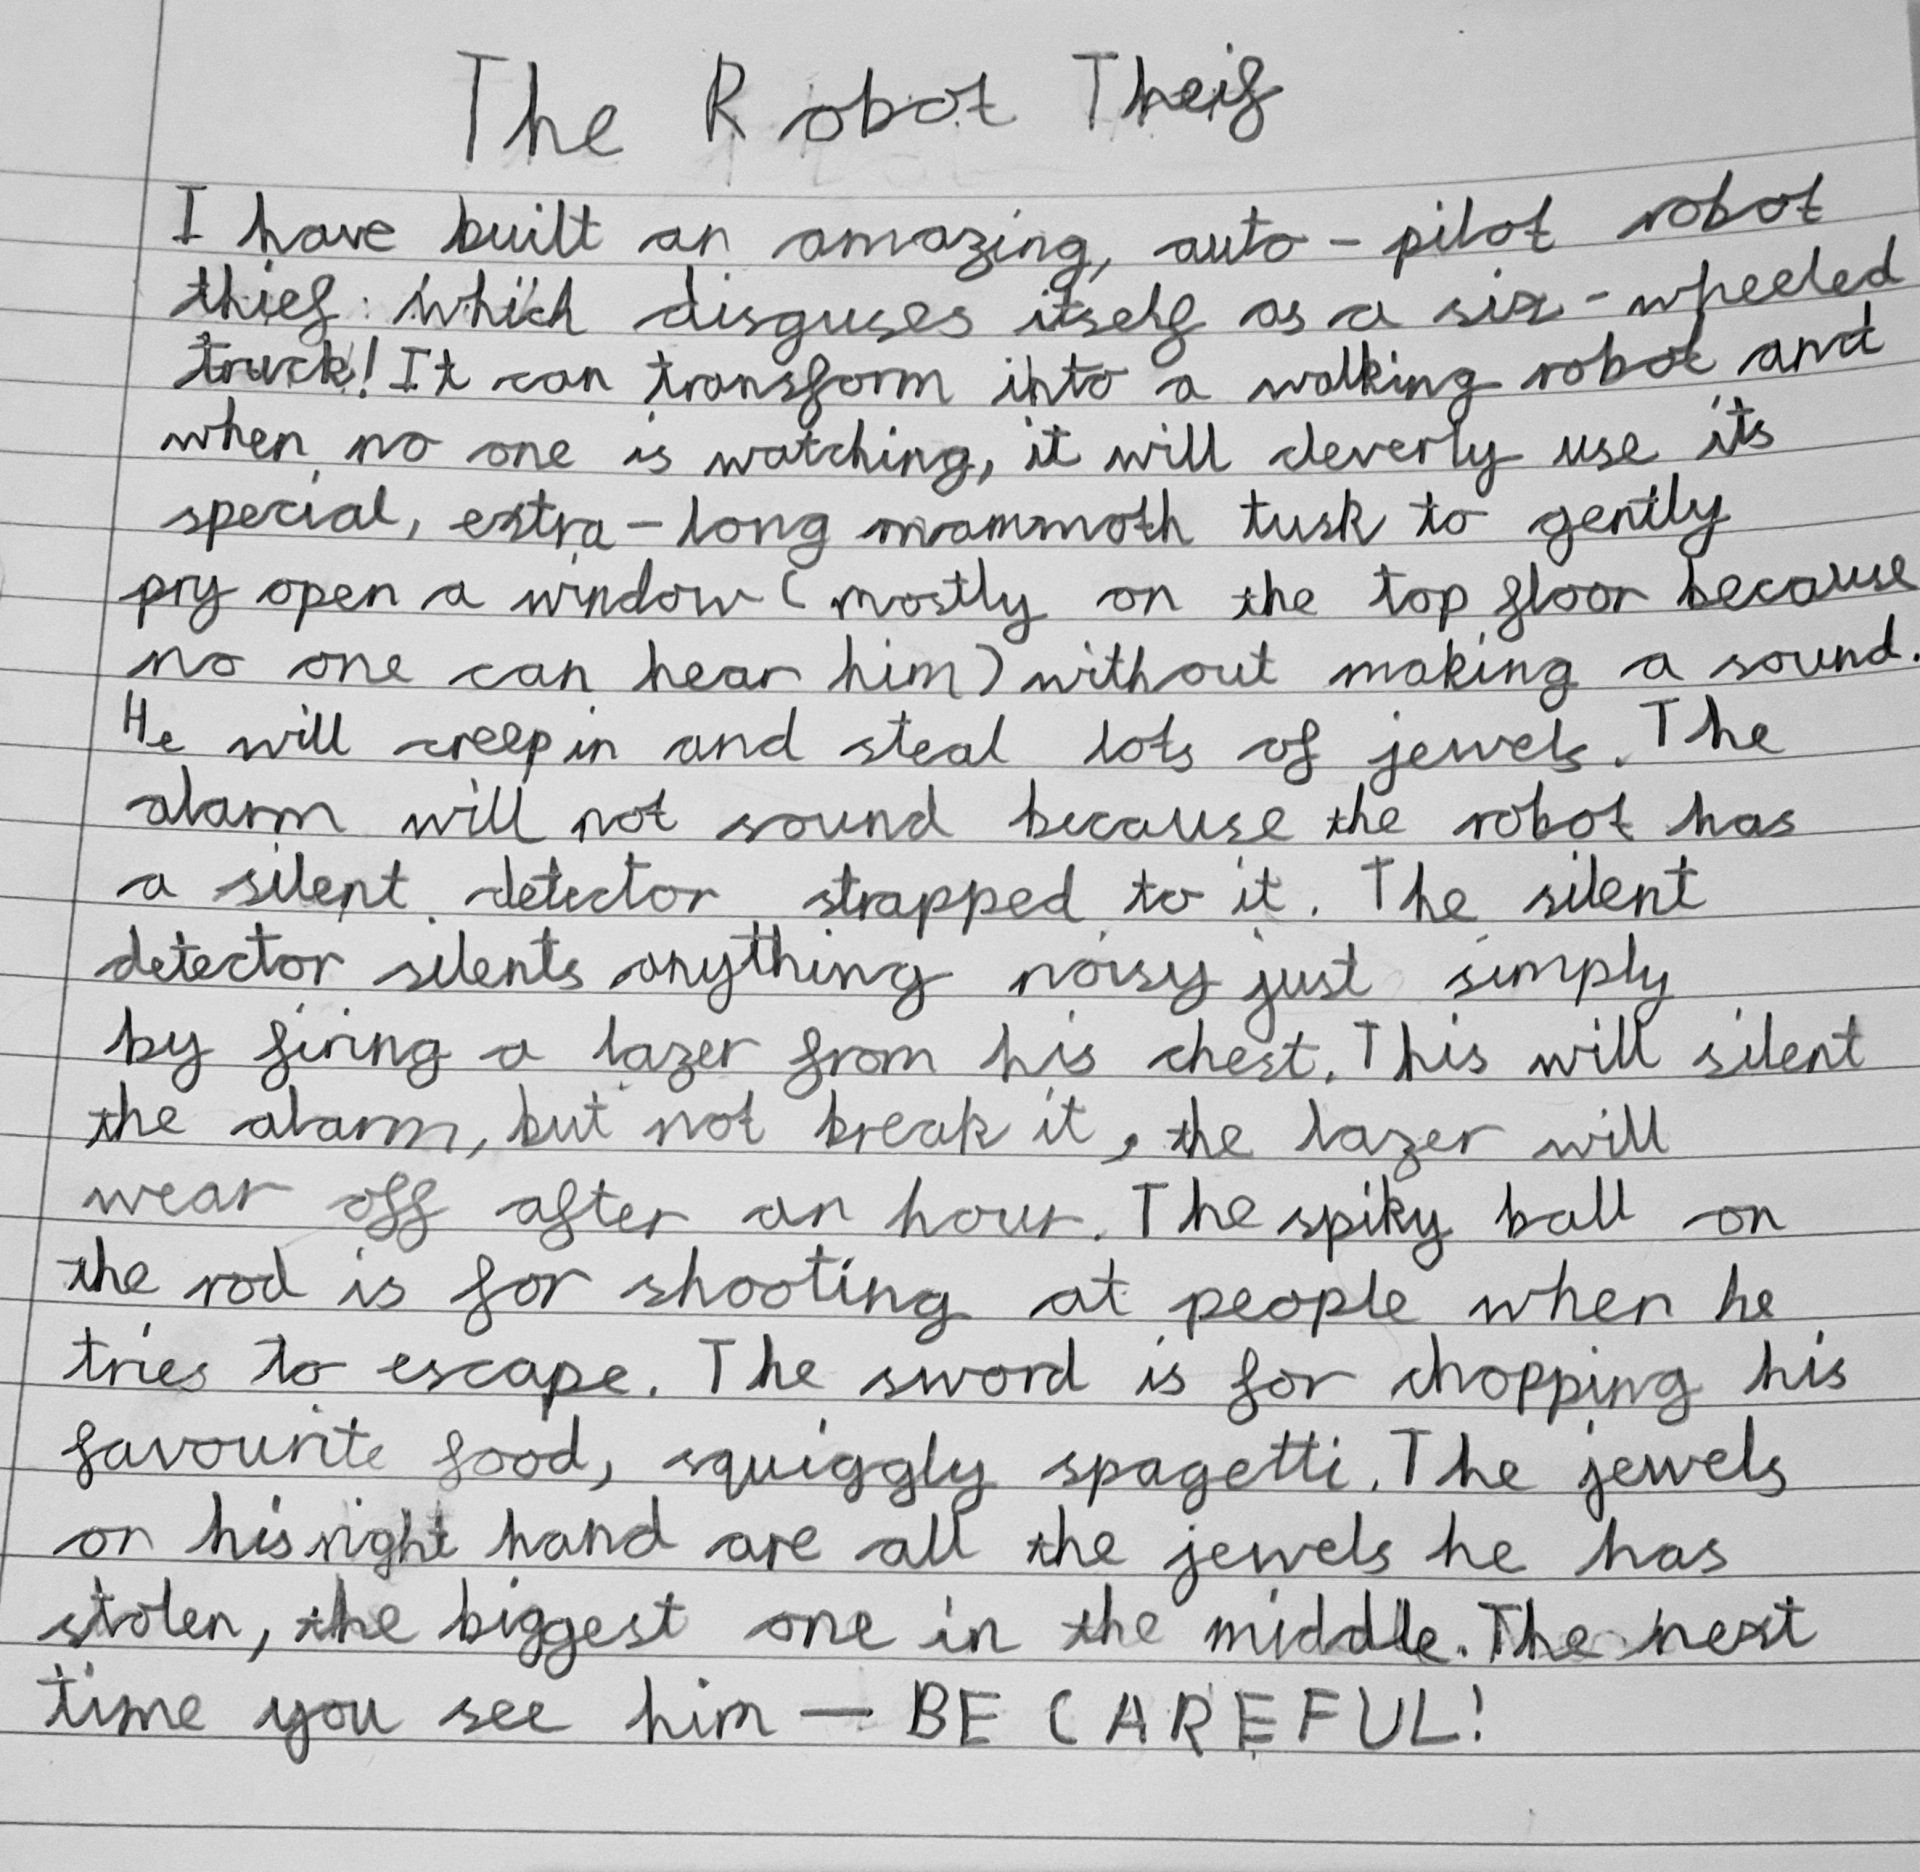 The Robot Theif
I have built an amazing, auto-pilot robot
thief which disguses itself as a six-wheeled
truck! It can transform into a walking robot and
when no one is watching, it will cleverly use its
special, extra-long mammoth tusk to gently
pry open a window (mostly on the top floor because
no one can hear him) without making a sound.
He will creep in and steal lots of jewels. The
alarm will not sound because the robot has
a silent detector strapped to it. The silent
detector silents anything noisy just simply
by firing a lazer from his chest. This will silent
the alarm, but not break it, the lazer will
wear off after an hour. The spiky ball on
the rod is for shooting at people when he
tries to escape. The sword is for chopping his
favourite food, squiggly spagetti. The jewels
on his right hand are all the jewels he has
stolen, the biggest one in the middle. The next
time you see him — BE CAREFUL!